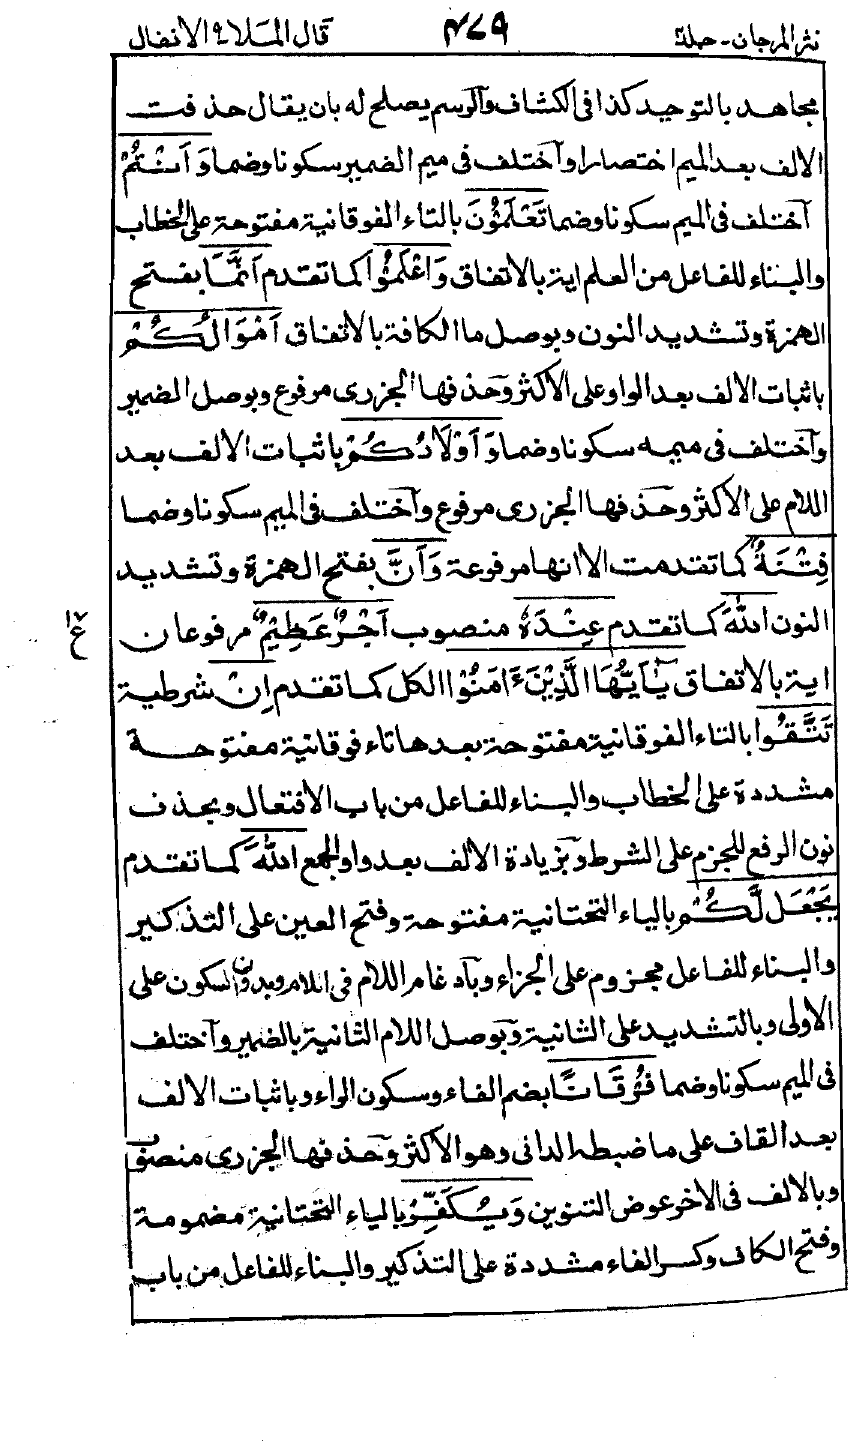 نثر المرجان - جملة ٤٧٩ قال الملا ٩ الانفال
مجاهد بالتوحيد كذا فى الكشاف والرسم يصلح له بان يقال حذفت
الالف بعد الميم اختصارا واختلف فى ميم الضمير سكونا وضما وَاَنْتُمْ
اختلف فى الميم سكونا وضما تَعْلَمُوْنَ بالتاء الفوقانية مفتوحة على الخطاب
والبناء للفاعل من العلم اية بالاتفاق وَاعْلَمُوْا كما تقدم اَنَّمَا بفتح
الهمزة وتشديد النون وبوصل ما الكافة بالاتفاق اَمْوَالُكُمْ
باثبات الالف بعد الواو على الاكثر وحذفها الجزرى مرفوع وبوصل الضمير
واختلف فى ميمه سكونا وضما وَاَوْلَادُكُمْ باثبات الالف بعد
اللام على الاكثر وحذفها الجزرى مرفوع واختلف فى الميم سكونا وضما
فِتْنَةٌ كما تقدمت الا انها مرفوعة وَاَنَّ بفتح الهمزة وتشديد
النون اللهَ كما تقدم عِنْدَهٗ منصوب اَجْرٌ عَظِيْمٌ مرفوعان
اية بالاتفاق يٰٓاَيُّهَا الَّذِيْنَ ءَامَنُوْا الكل كما تقدم اِنْ شرطية
تَتَّقُوا بالتاء الفوقانية مفتوحة بعدها تاء فوقانية مفتوحة
مشددة على الخطاب والبناء للفاعل من باب الافتعال وبحذف
نون الرفع للجزم على الشرط وبزيادة الالف بعد واو الجمع اللهَ كما تقدم
يَجْعَل لَّكُمْ بالياء التحتانية مفتوحة وفتح العين على التذكير
والبناء للفاعل مجزوم على الجزاء وبادغام اللام فى اللام وبدون السكون على
الاولى وبالتشديد على الثانية وبوصل اللام الثانية بالضمير واختلف
فى الميم سكونا وضما فُرْقَانًا بضم الفاء وسكون الراء وباثبات الالف
بعد القاف على ما ضبطه الدانى وهو الاكثر وحذفها الجزرى منصوب
وبالالف فى الاخر عوض التنوين وَيُكَفِّرْ بالياء التحتانية مضمومة
وفتح الكاف وكسر الفاء مشددة على التذكير والبناء للفاعل من باب